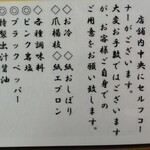 店舗内中央にセルフコー
ナーがございます。
大変お手数ではございます
が、お客様ご自身での
ご用意をお願い致します。
◇お冷◇紙おしぼり
◇爪楊枝◇紙エプロン
◇各種調味料
◎ピンク岩塩
◎ブラックペッパー
◎特製出汁醤油